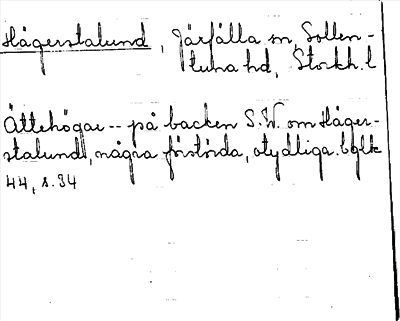 Hägerstalund, Järfälla sn, Sollen-
tuna hd, Stockh. l
Ättehögar -- på backen S.W. om Häger-
stalund, några förstörda, otydliga. bglk
44, s. 34